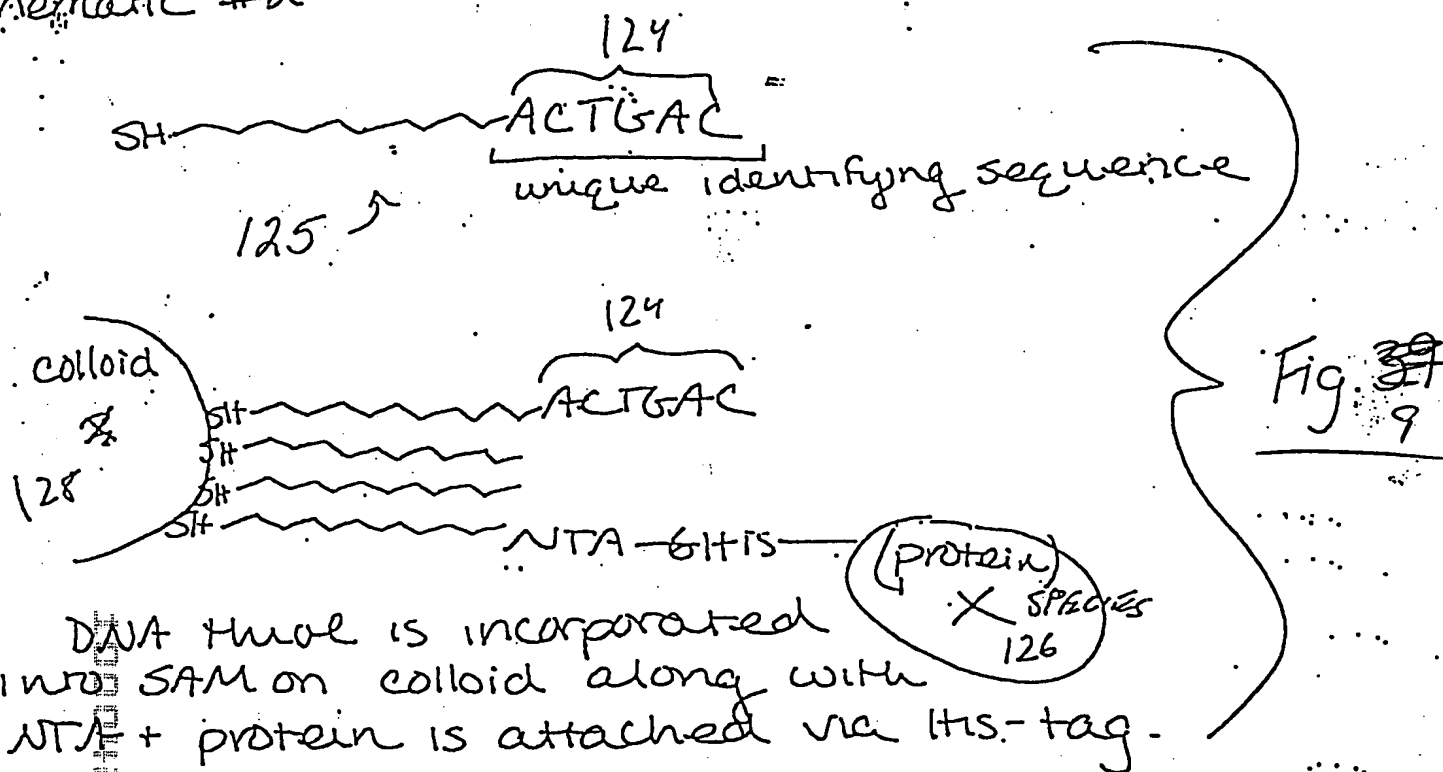 124
SH ACTGAC
unique identifying sequence
125
124
colloid
SH ACTGAC
SH
128 SH
SH NTA-6His-(protein)
X SPECIES
126
Fig.
9
DNA thiol is incorporated
into SAM on colloid along with
NTA + protein is attached via His-tag.